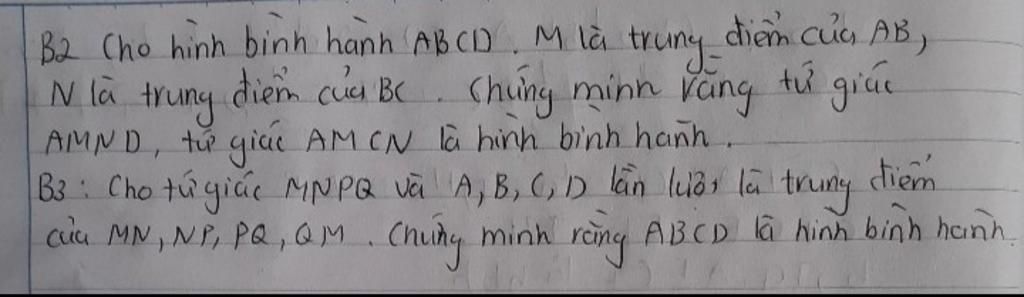 B2 Cho hình bình hành ABCD. M là trung điểm của AB,
N là trung điểm của BC. Chứng minh rằng tứ giác
AMND, tứ giác AMCN là hình bình hành.
B3: Cho tứ giác MNPQ và A, B, C, D lần lượt là trung điểm
của MN, NP, PQ, QM. Chứng minh rằng ABCD là hình bình hành.